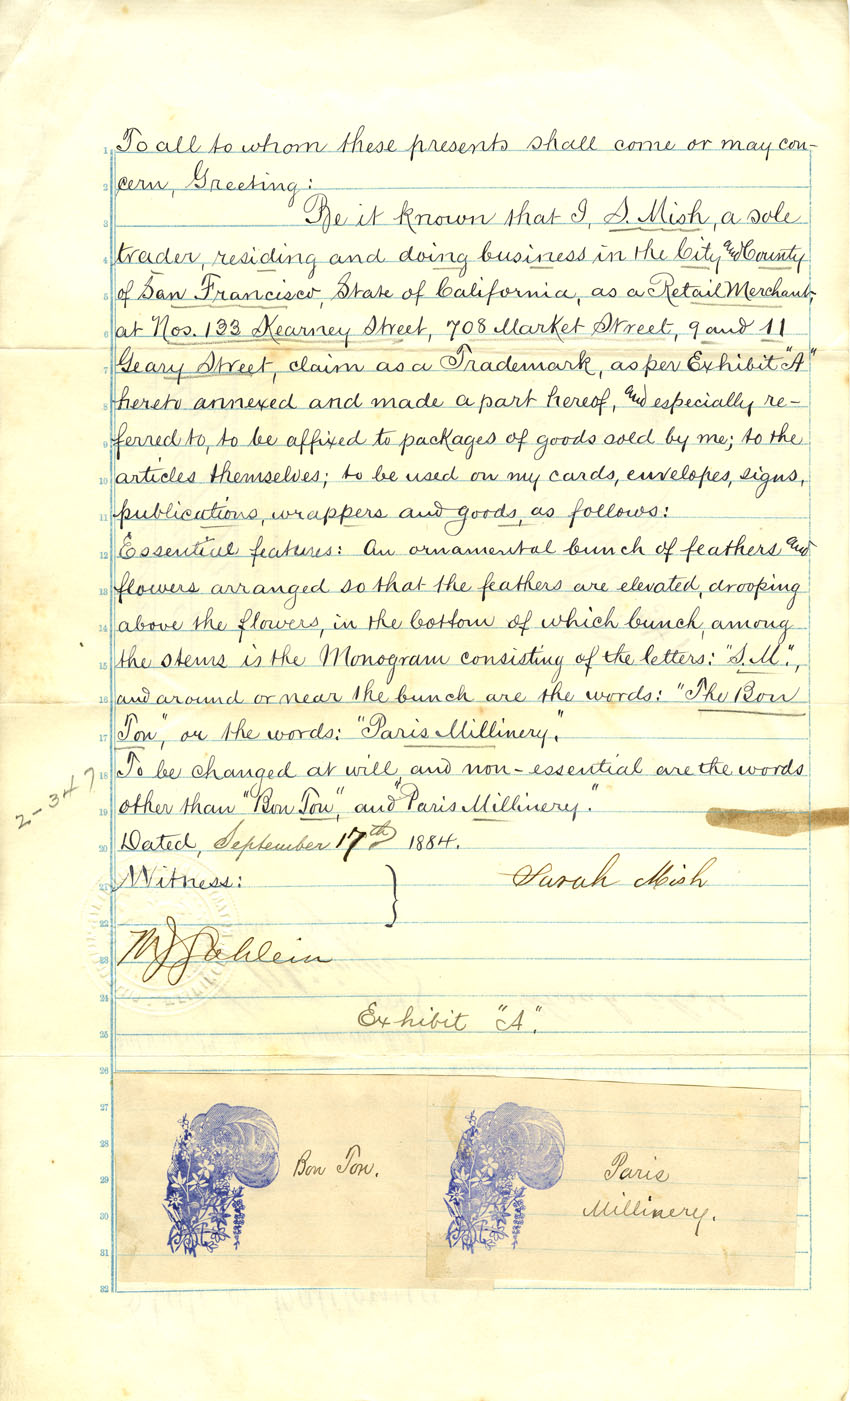 To all to whom these presents shall come or may con-
cern, Greeting:
Be it known that I, S. Mish, a sole
trader, residing and doing business in the City and County
of San Francisco, State of California, as a Retail Merchant,
at Nos. 133 Kearney Street, 708 Market Street, 9 and 11
Geary Street, claim as a Trademark, as per Exhibit "A"
hereto annexed and made a part hereof, and especially re-
ferred to, to be affixed to packages of goods sold by me; to the
articles themselves; to be used on my cards, envelopes, signs,
publications, wrappers and goods, as follows:
Essential features: An ornamental bunch of feathers and
flowers arranged so that the feathers are elevated, drooping
above the flowers, in the bottom of which bunch, among
the stems is the Monogram consisting of the letters: "S. M.",
and around or near the bunch are the words: "The Bon
Ton", or the words: "Paris Millinery".
To be changed at will and non-essential are the words
other than "Bon Ton", and "Paris Millinery."
2-347
Dated, September 17th 1884.
Witness:
Sarah Mish
Exhibit "A".
Bon Ton.
Paris
Millinery.
1
2
3
4
5
6
7
8
9
10
11
12
13
14
15
16
17
18
19
20
21
22
23
24
25
26
27
28
29
30
31
32